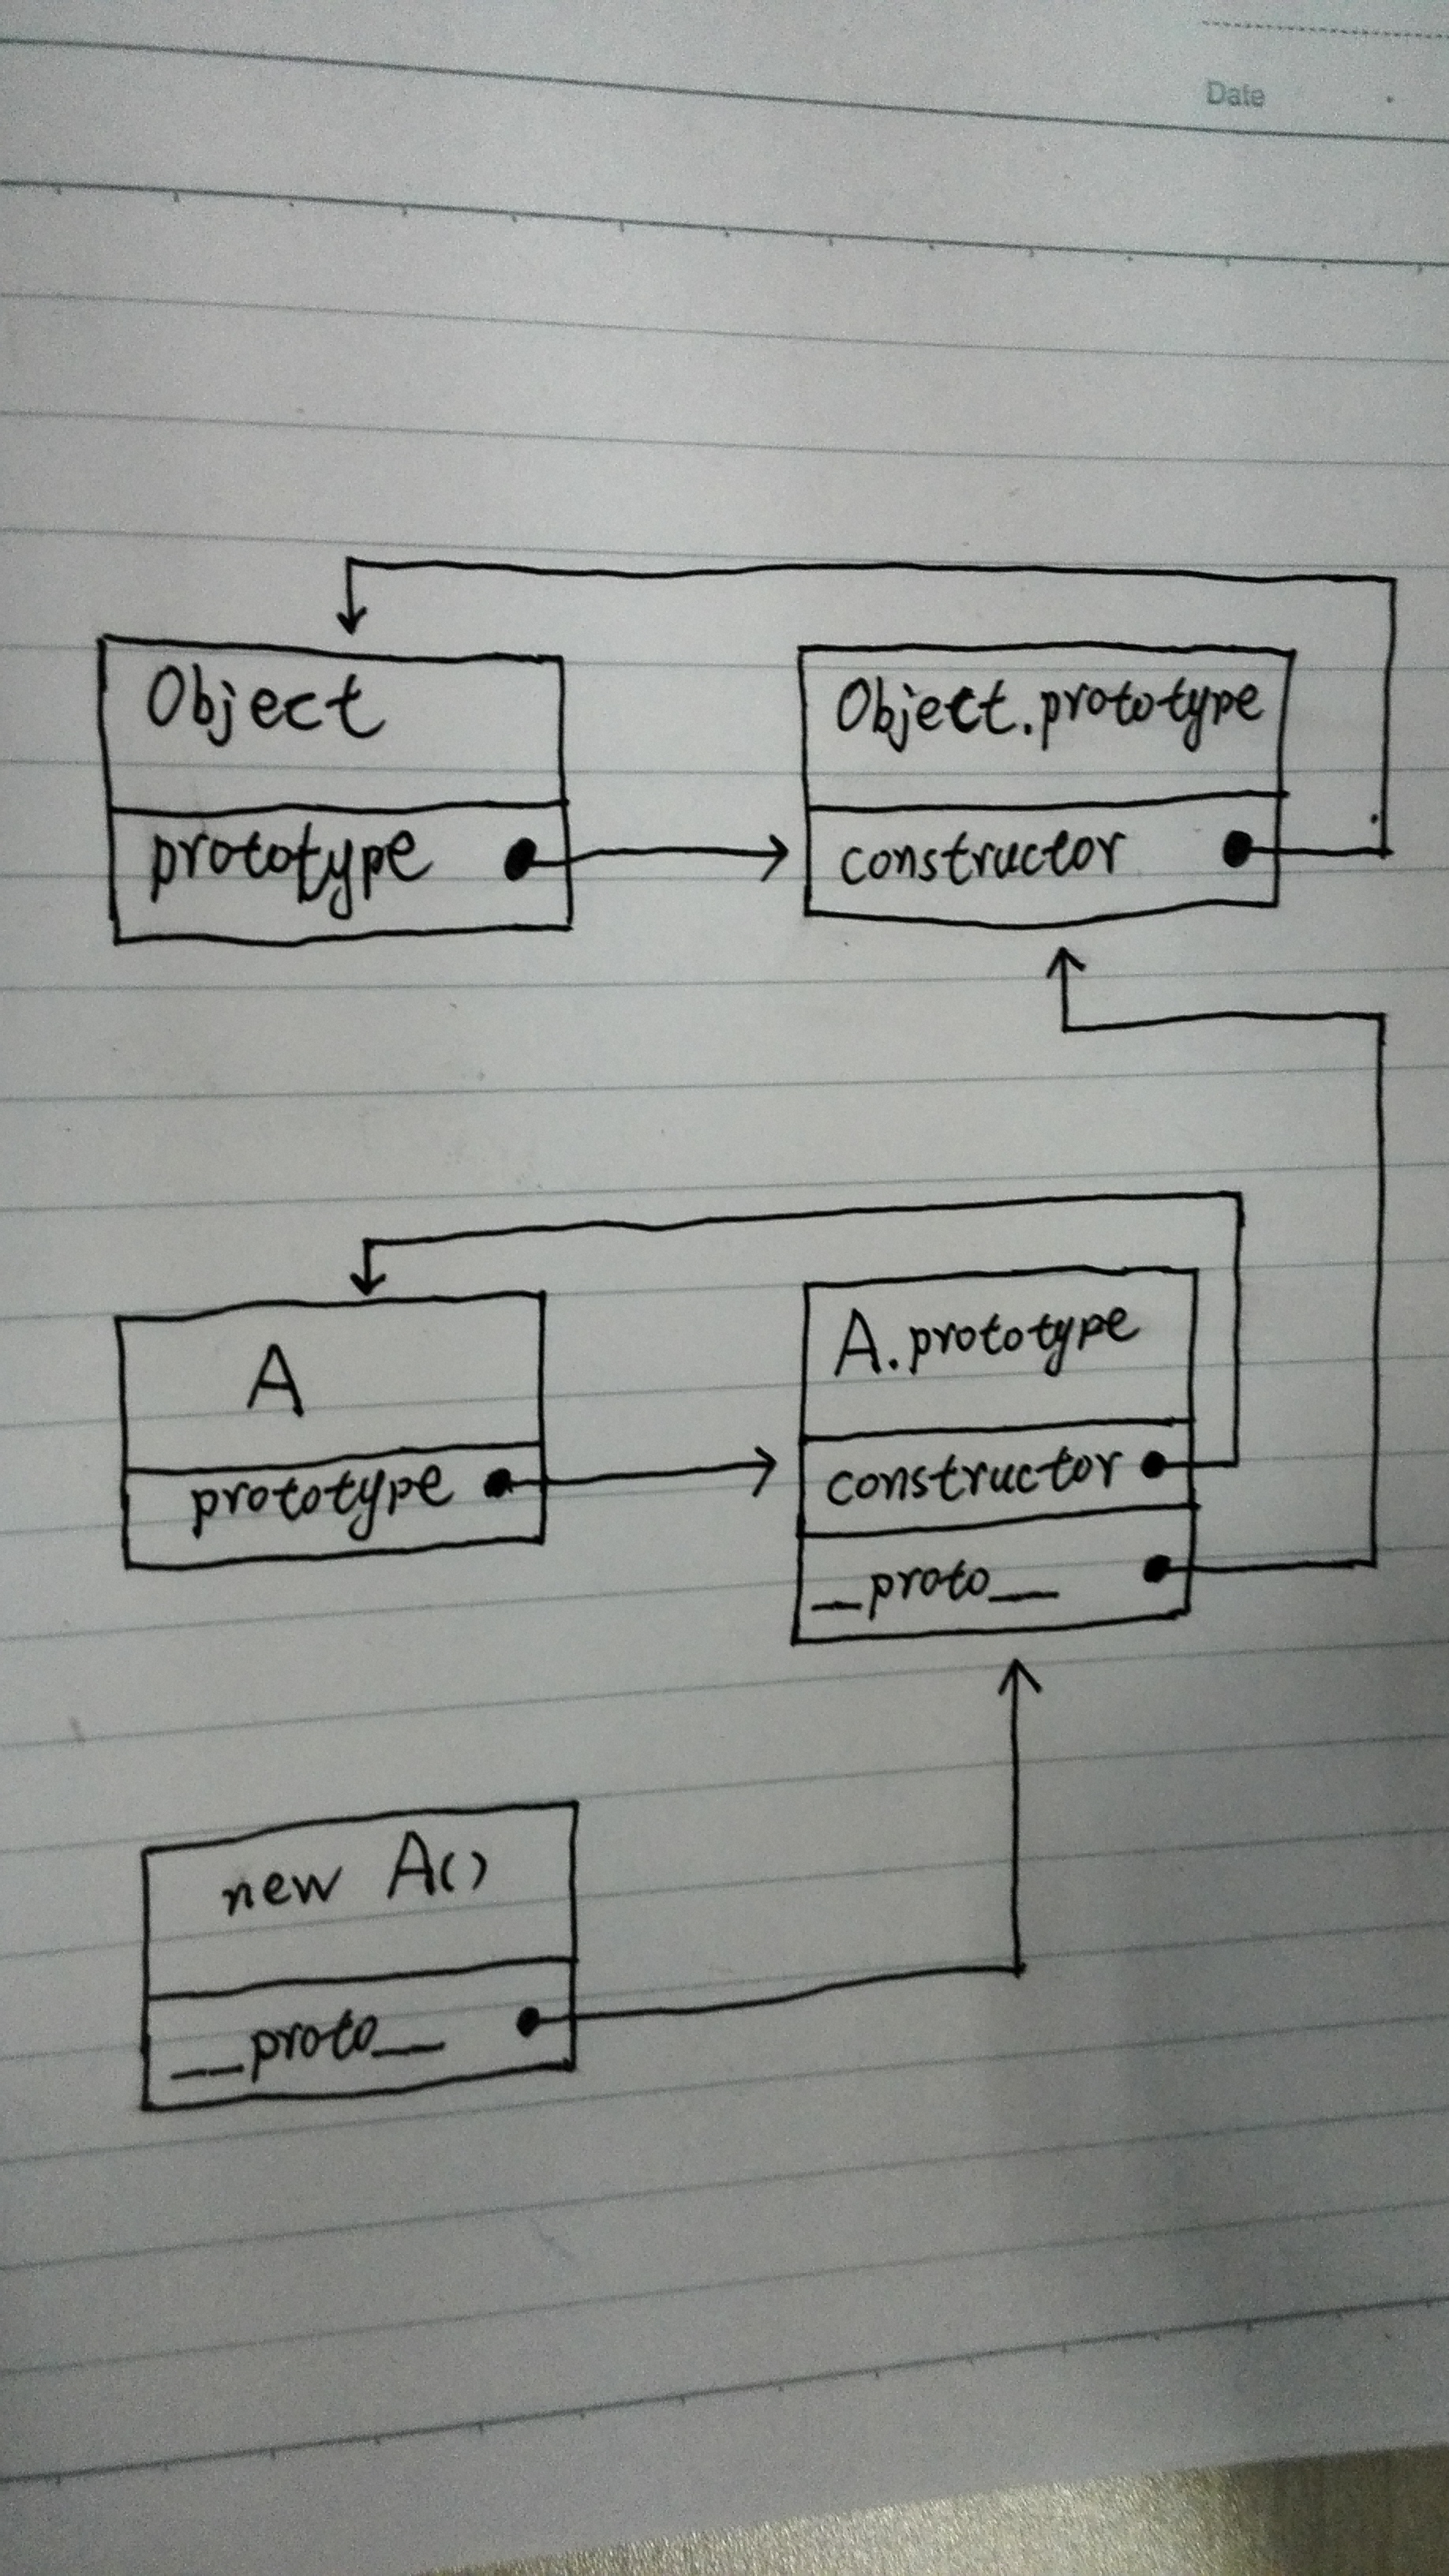 Date
Object
Object.prototype
prototype
constructor
A
A.prototype
prototype
constructor
__proto__
new A()
__proto__